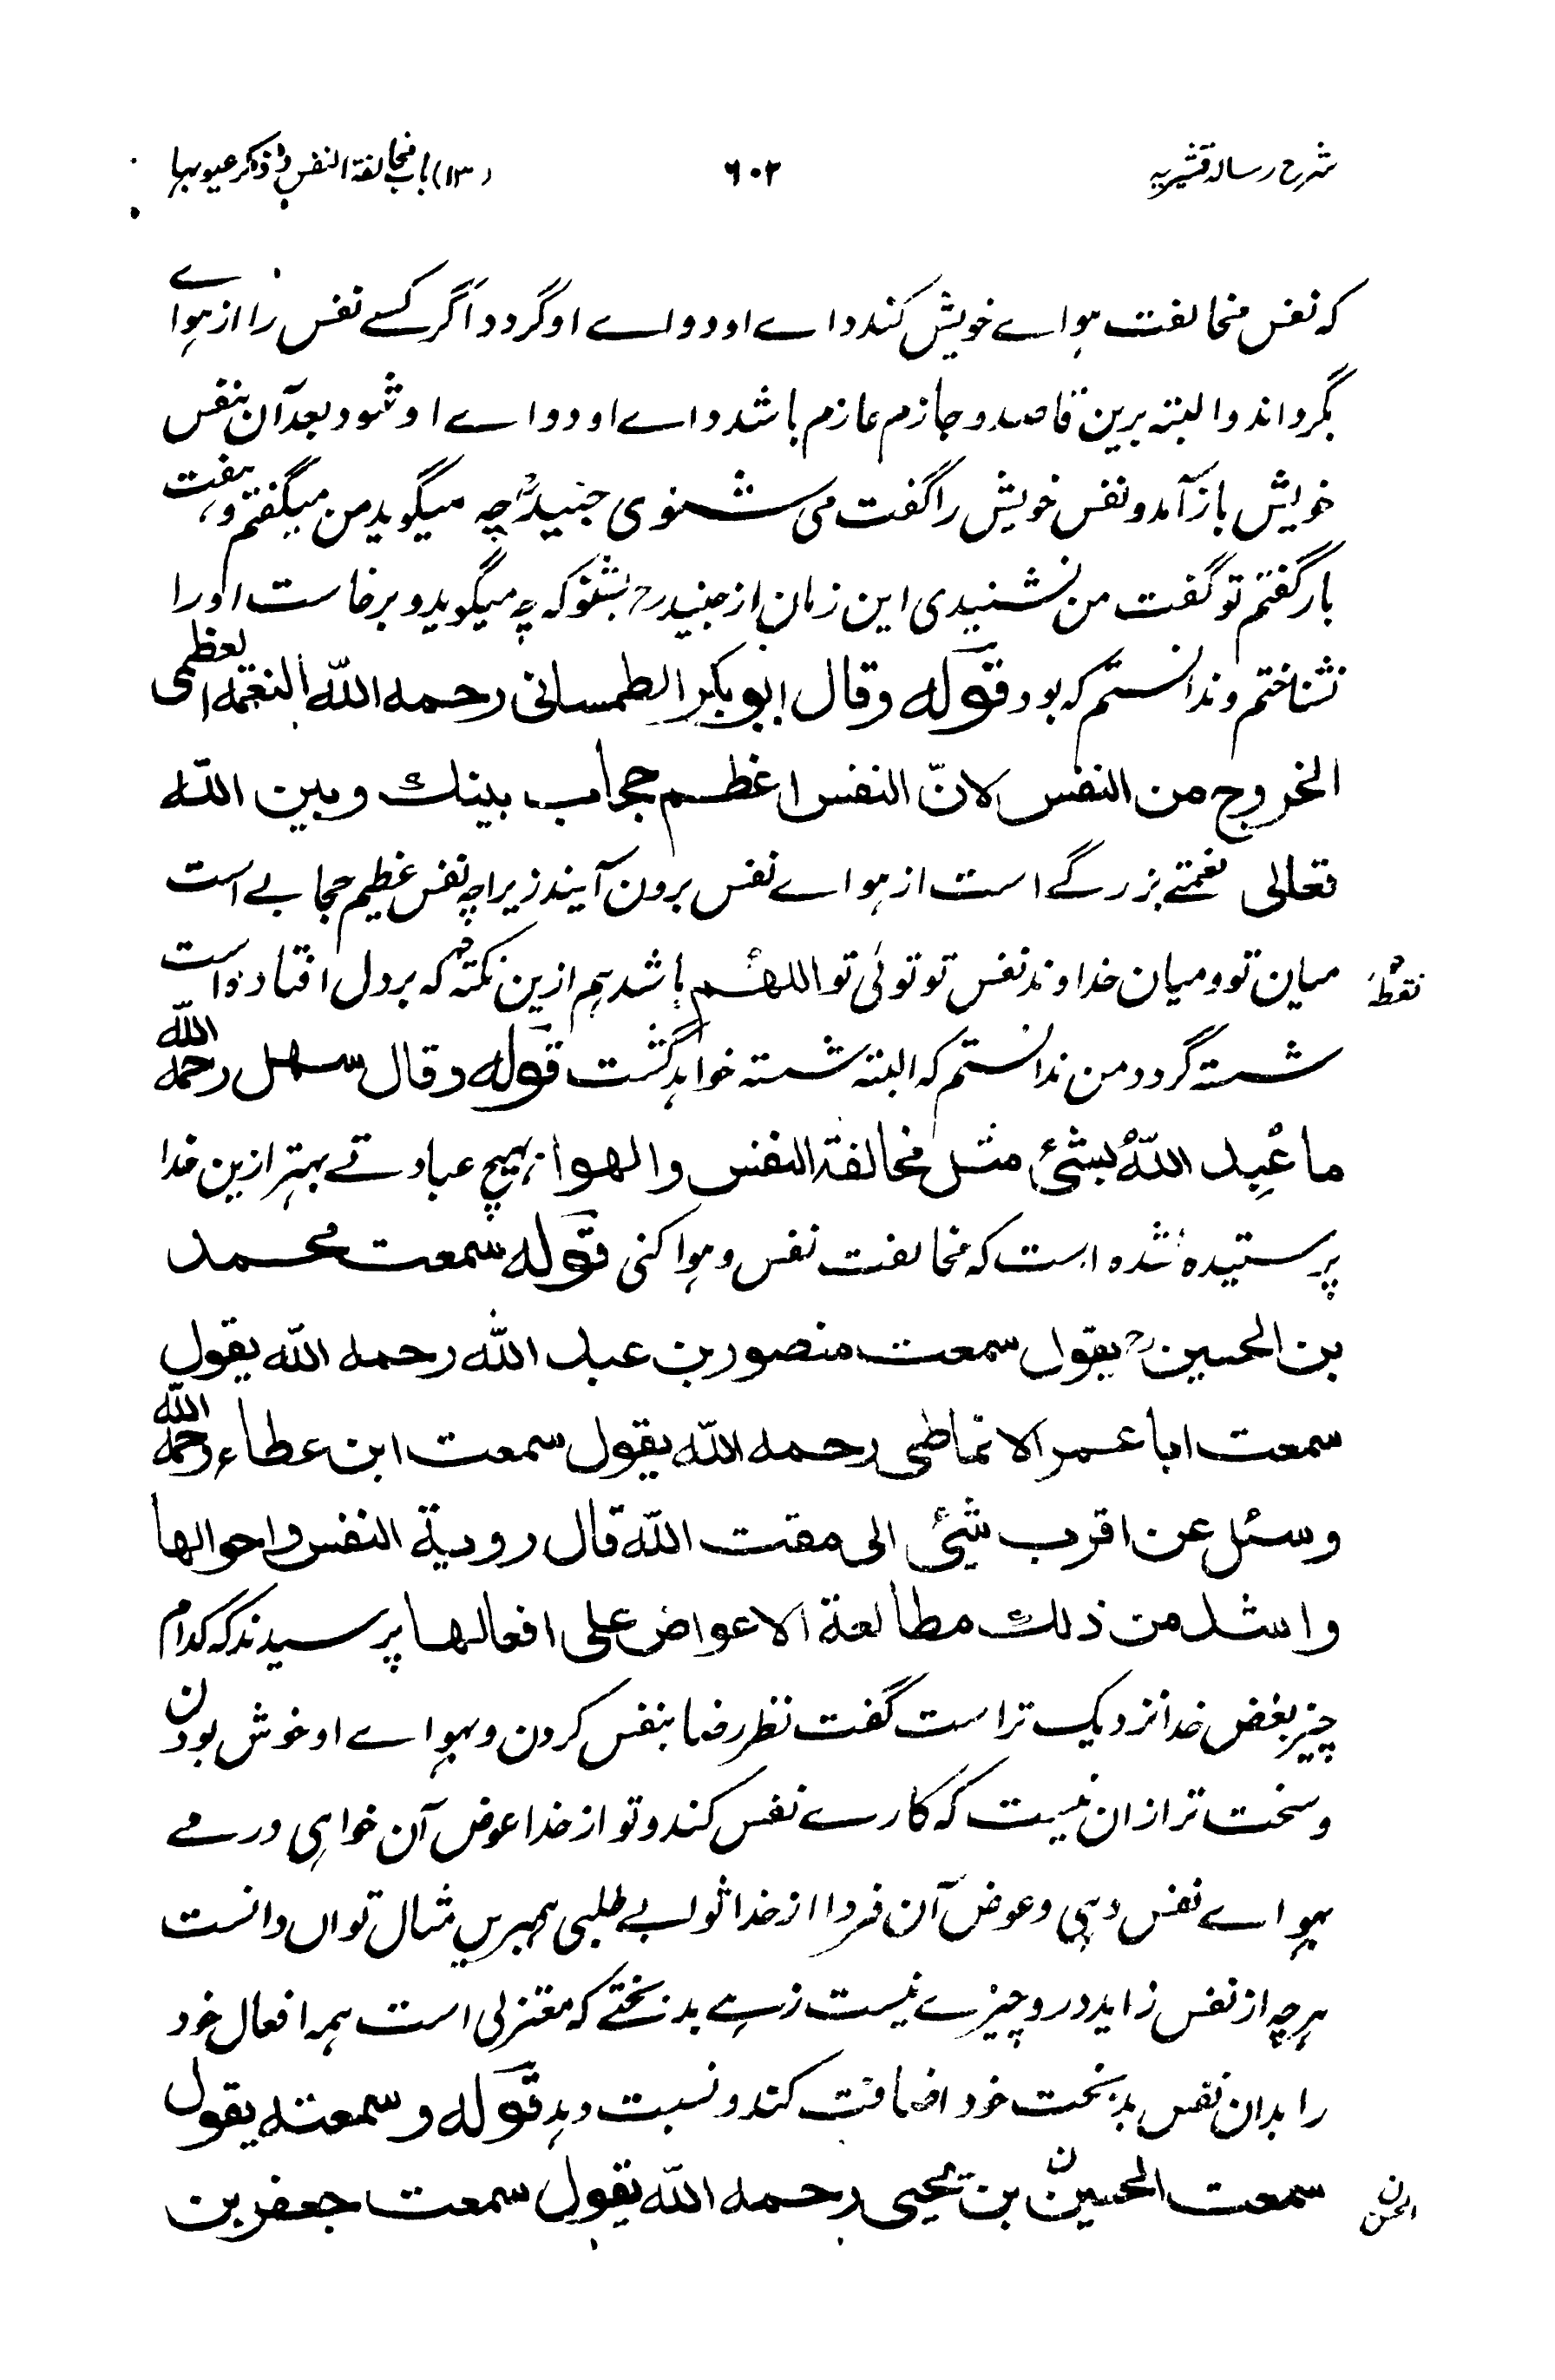 شرح رسالہ قشیریہ ۶۰۲ (۱۳) باب مخالفة النفس و ذکر عیوبہا
کہ نفس مخالفت ہواے خویش کند داے او دواے او گردد اگر کسے نفس را از ہواے
بگرداند والبتہ برین قاصد و جازم عازم باشد داے او دواے او شود بعد آن بنفس
خویش باز آمد و نفس خویش را گفت می شنوی جنیدؒ چہ میگوید من میگفتم و ہفت
بار گفتم تو گفت من نشنیدی این زمان از جنیدرح بشنو کہ چہ میگوید و برخاست او را
نشناختم و ندانستم کہ بود قولہ وقال ابو بکر الطمسانی رحمہ اللّٰہ النعمہ العظمی
الخروج من النفس لانّ النفس اعظم حجاب بینك وبین اللّٰہ
تعالی نعمتے بزرگے است از ہواے نفس برون آیند زیراچہ نفس عظیم حجابے است
میان تو و میان خداوند نفس تو توئی تو اللهم باشد ہم ازین نکتہ کہ بر دل افتادہ است
نقطہ
شستہ گردد من ندانستم کہ البتہ شستہ خواہد گشت قولہ وقال سهل رحمہ اللّٰہ
ما عُبِد اللّٰہُ بشئ مثل مخالفة النفس والهوا بہیچ عبادتے بہتر ازین خدا
پرستیدہ نشدہ است کہ مخالفت نفس و ہوا کنی قولہ سمعت محمد
بن الحسینرح یقول سمعت منصور بن عبد اللّٰہ رحمہ اللّٰہ یقول
سمعت ابا عمر الانماطی رحمہ اللّٰہ یقول سمعت ابن عطاء رحمہ اللّٰہ
وسئل عن اقرب شیئ الی مقت اللّٰہ قال رویة النفس واحوالها
واشد من ذلك مطالعة الاعواض علی افعالها پرسیدند کہ کدام
چیز ببغض خدا نزدیک تر است گفت نظر رضا بنفس کردن و بہواے او خوش بودن
و سخت تر از ان نیست کہ کارے نفس کند و تو از خدا عوض آن خواہی درمے
بہواے نفس دہی و عوض آن فردا از خدا ثوابے طلبی ہمبرین مثال تواں دانست
ہرچہ از نفس زاید درو چیزے نیست زہے بدبختے کہ معتزلی است ہمہ افعال خود
را بدان نفس بدبخت خود اضافت کند و نسبت دہد قولہ وسمعتہ یقول
سمعت الحسین بن یحیی رحمہ اللّٰہ یقول سمعت جعفر بن
الحسن